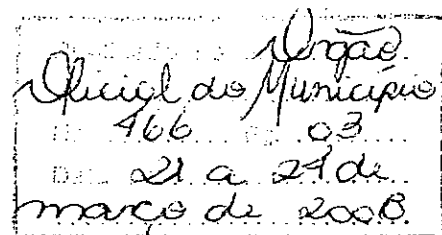 Órgão
Oficial do Município
466 03
21 a 24 de
março de 2008.